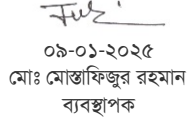 ০৯-০১-২০২৫
মোঃ মোস্তাফিজুর রহমান
ব্যবস্থাপক